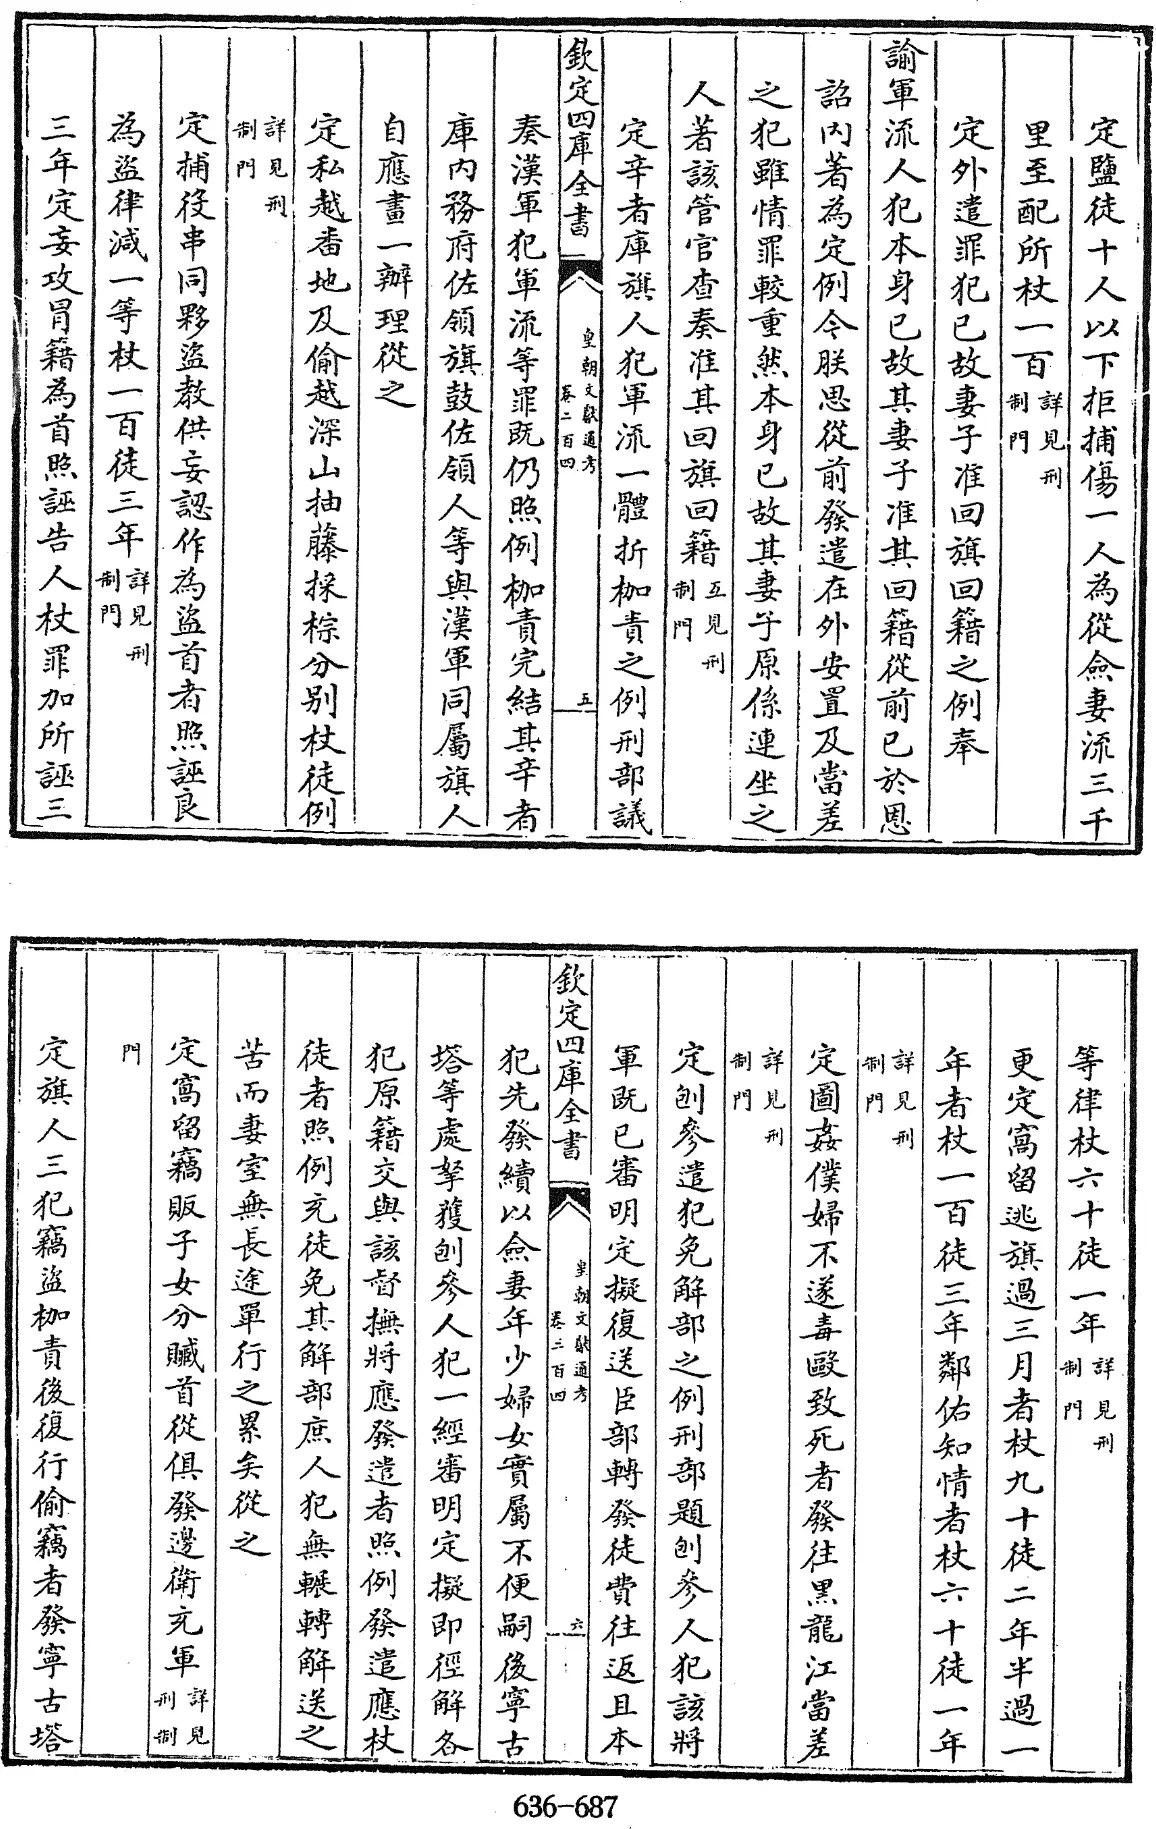 定鹽徒十人以下拒捕傷一人為從僉妻流三千
里至配所杖一百詳見刑制門
定外遣罪犯已故妻子准回旗回籍之例奉
諭軍流人犯本身已故其妻子准其回籍從前已於恩
詔内著為定例令朕思從前發遣在外安置及當差
之犯雖情罪較重然本身已故其妻子原係連坐之
人著該管官查奏准其回旗回籍互見刑制門
定辛者庫旗人犯軍流一體折枷責之例刑部議
欽定四庫全書
皇朝文獻通考
卷二百四
五
奏漢軍犯軍流等罪既仍照例枷責完結其辛者
庫内務府佐領旗鼓佐領人等與漢軍同屬旗人
自應畫一辦理從之
定私越番地及偷越深山抽藤採棕分别杖徒例
詳見刑制門
定捕役串同夥盜教供妄認作為盜首者照誣良
為盜律減一等杖一百徒三年詳見刑制門
三年定妄攻冒籍為首照誣告人杖罪加所誣三
等律杖六十徒一年詳見刑制門
更定窩留逃旗過三月者杖九十徒二年半過一
年者杖一百徒三年鄰佑知情者杖六十徒一年
詳見刑制門
定圖姦僕婦不遂毒毆致死者發往黑龍江當差
詳見刑制門
定刨參遣犯免解部之例刑部題刨參人犯該將
軍既已審明定擬復送臣部轉發徒費往返且本
欽定四庫全書
皇朝文獻通考
卷二百四
六
犯先發續以僉妻年少婦女實屬不便嗣後寧古
塔等處拏獲刨參人犯一經審明定擬即徑解各
犯原籍交與該督撫將應發遣者照例發遣應杖
徒者照例充徒免其解部庶人犯無輾轉解送之
苦而妻室無長途單行之累矣從之
定窩留竊販子女分贓首從俱發邊衛充軍詳見刑制
門
定旗人三犯竊盜枷責後復行偷竊者發寧古塔
636-687